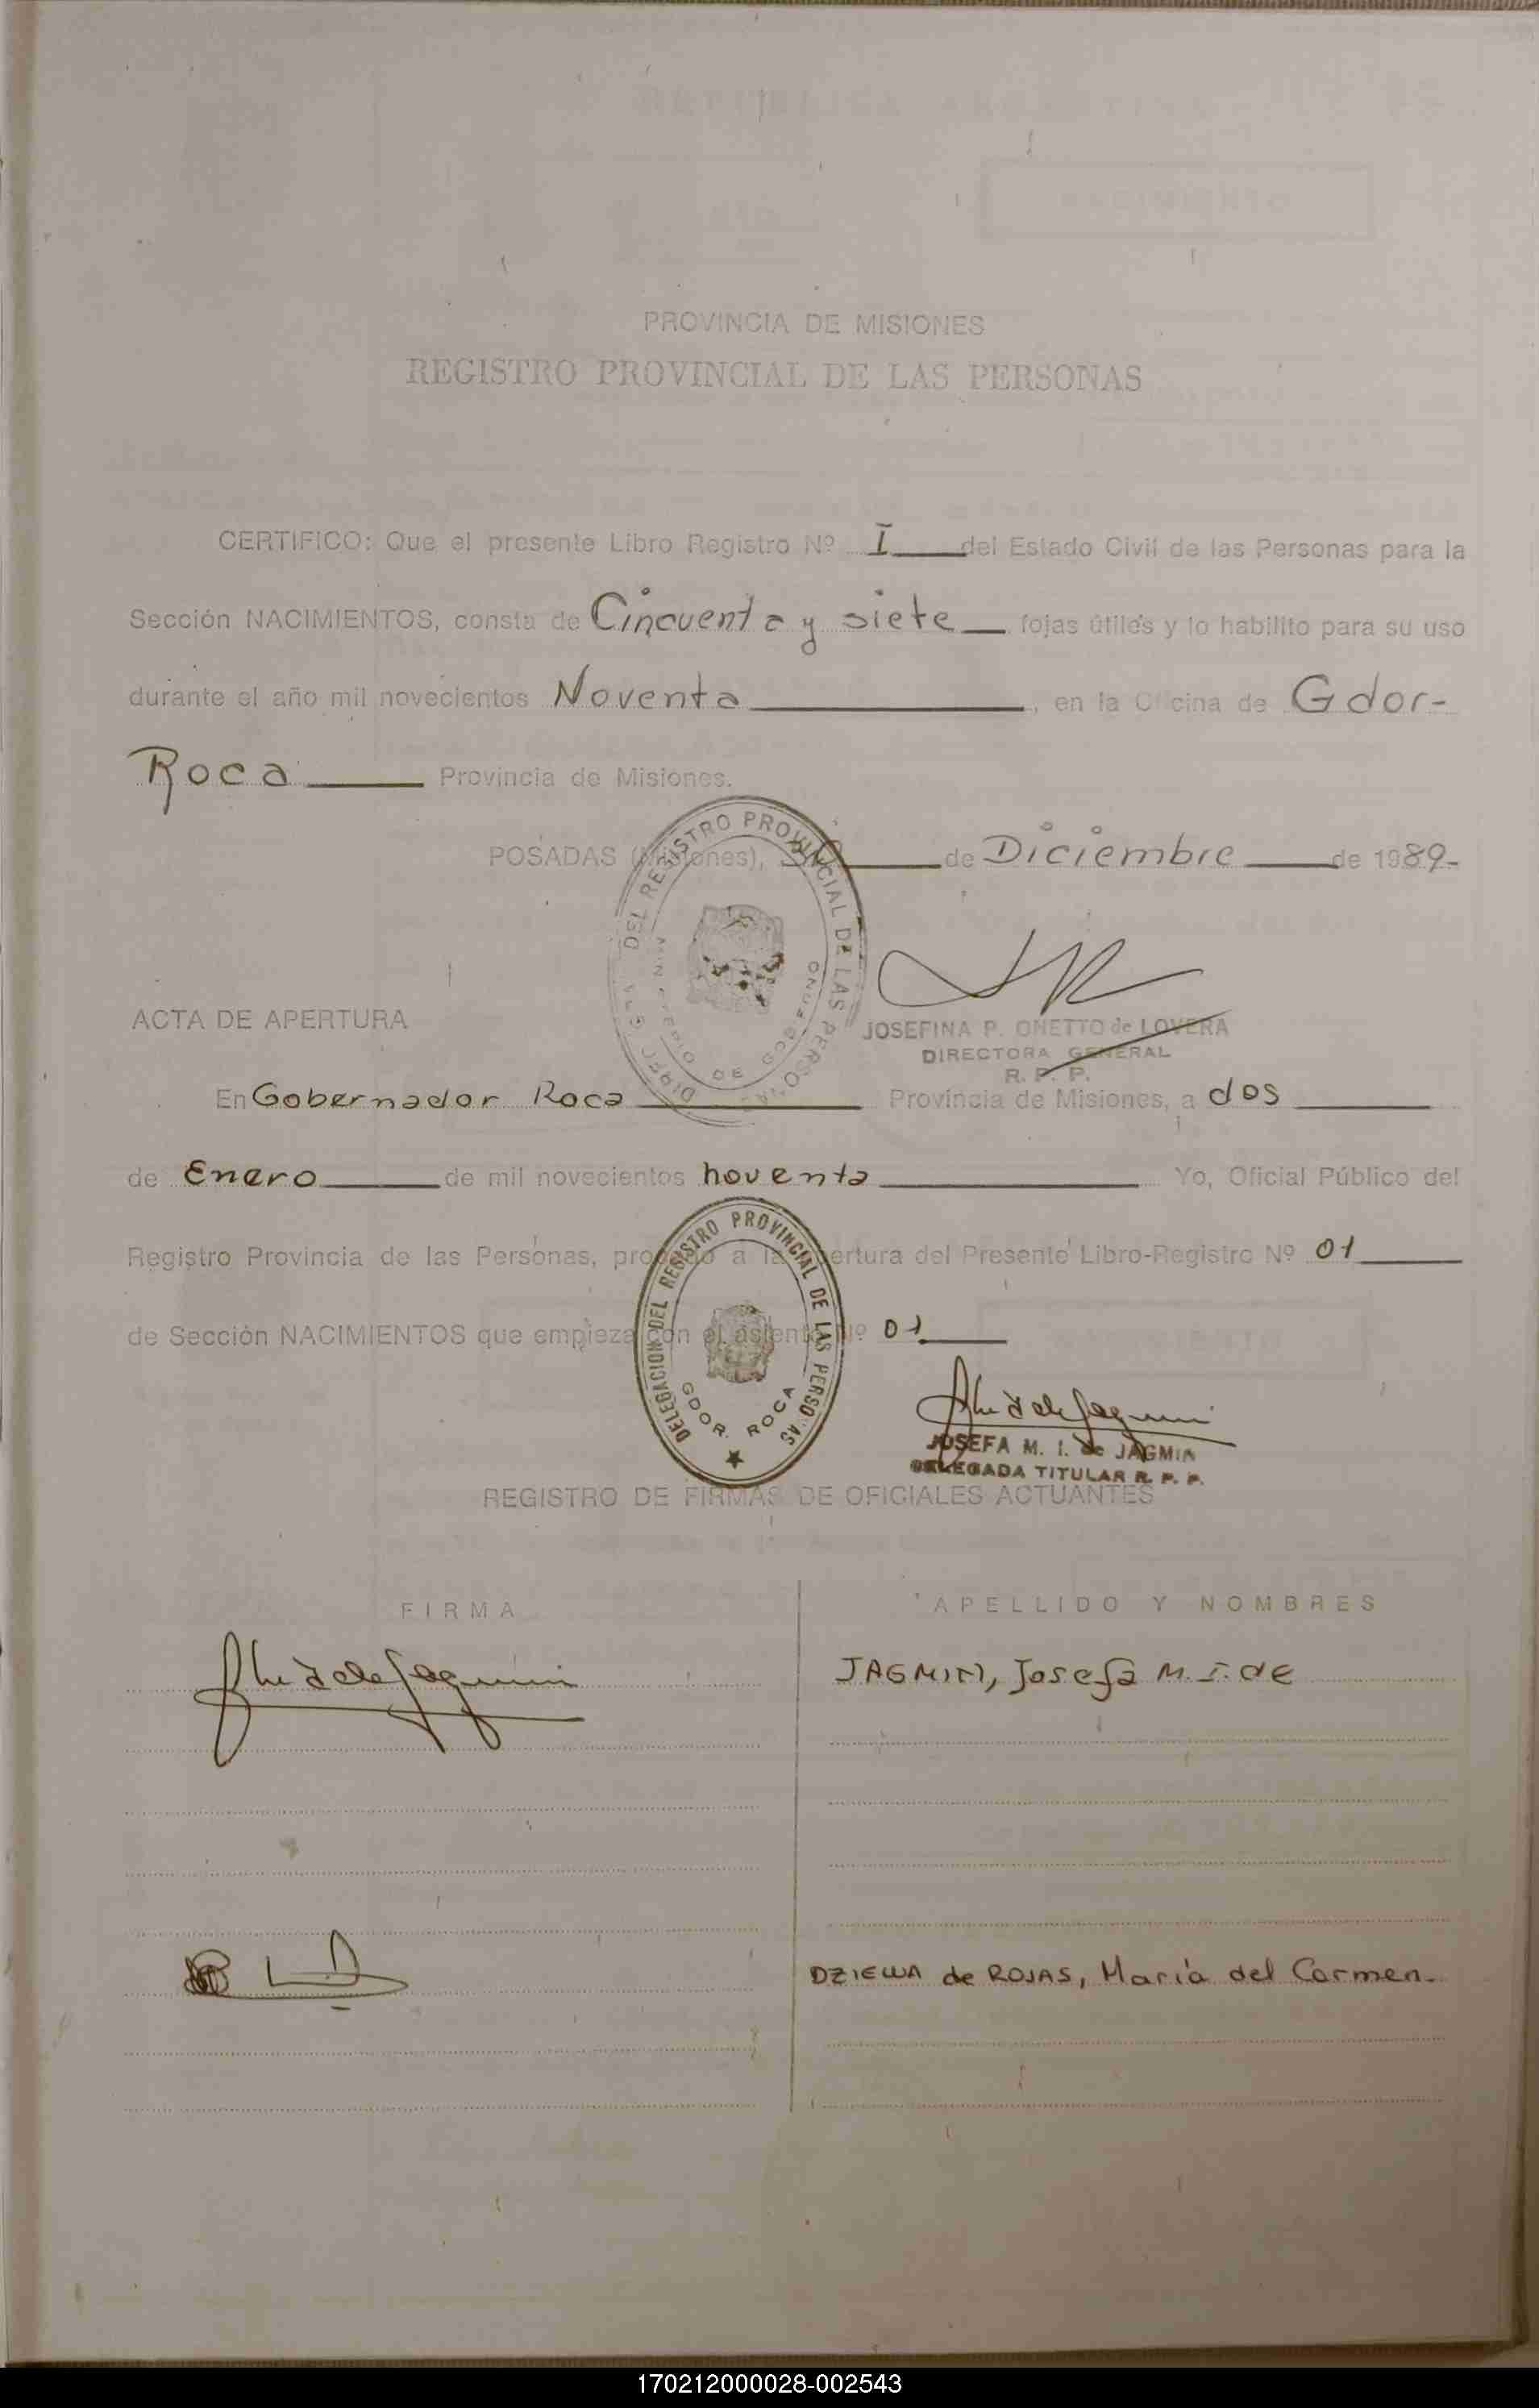 PROVINCIA DE MISIONES
REGISTRO PROVINCIAL DE LAS PERSONAS
CERTIFICO: Que el presente Libro Registro Nº I del Estado Civil de las Personas para la
Sección NACIMIENTOS, consta de Cincuenta y siete fojas útiles y lo habilito para su uso
durante el año mil novecientos Noventa, en la Oficina de Gdor-
Roca Provincia de Misiones.
POSADAS (Misiones), de Diciembre de 1989-
DEL REGISTRO PROVINCIAL DE LAS PERSONAS
MINISTERIO DE GOBIERNO
JOSEFINA P. ONETTO de LOVERA
DIRECTORA GENERAL
R. P. P.
ACTA DE APERTURA
En Gobernador Roca Provincia de Misiones, a dos
de Enero de mil novecientos noventa Yo, Oficial Público del
Registro Provincia de las Personas, procedo a la apertura del Presente Libro-Registro Nº 01
de Sección NACIMIENTOS que empieza con el asiento Nº 01
DELEGACION DEL REGISTRO PROVINCIAL DE LAS PERSONAS
GDOR. ROCA
JOSEFA M. I. de JAGMIN
DELEGADA TITULAR R. P. P.
REGISTRO DE FIRMAS DE OFICIALES ACTUANTES
FIRMA APELLIDO Y NOMBRES
JAGMIN, Josefa M. I. de
DZIEWA de ROJAS, María del Carmen.
170212000028-002543